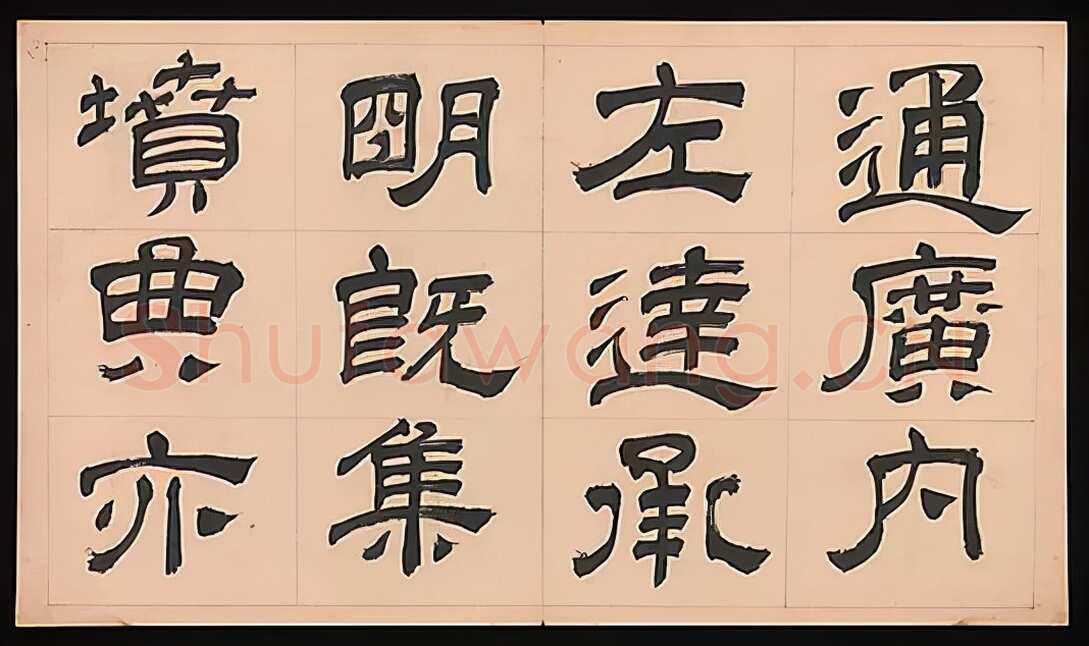 通廣内
左達承
明既集
墳典亦
Shufawang.cn